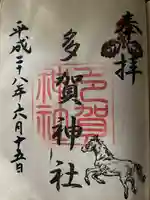 奉拝
多賀神社
平成二十八年六月十五日